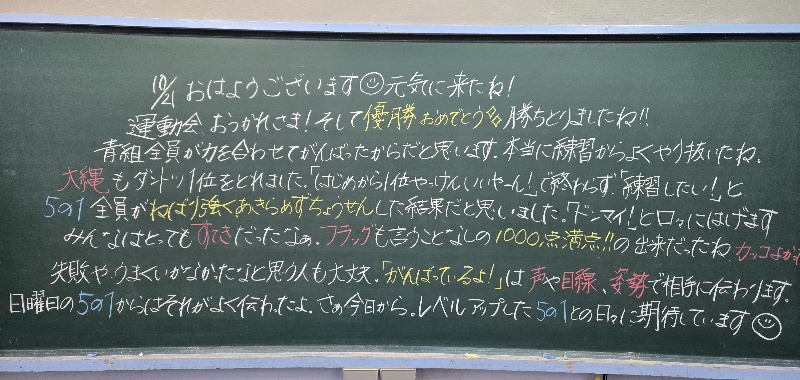 10/21 おはようございます☺元気に来たね!
運動会 おつかれさま!そして優勝おめでとう!!勝ちとりましたね!!
青組全員が力を合わせてがんばったからだと思います.本当に練習からよくやり抜いたね.
大縄もダントツ1位をとれました.「はじめから1位やっけん、いいやーん!」で終わらず「練習したい!」と
5の1 全員がねばり強くあきらめずちょうせんした結果だと思いました。「ドンマイ!」と口々にはげます
みんなはとってもすてきだったなぁ.フラッグも言うことなしの1000点満点!!の出来だったね カッコよかった
失敗や、うまくいかなかったなと思う人も大丈夫.「がんばっているよ!」は声や目線、姿勢で相手に伝わります.
日曜日の5の1からはそれがよく伝わったよ.さぁ今日から.レベルアップした5の1との日々に期待しています☺